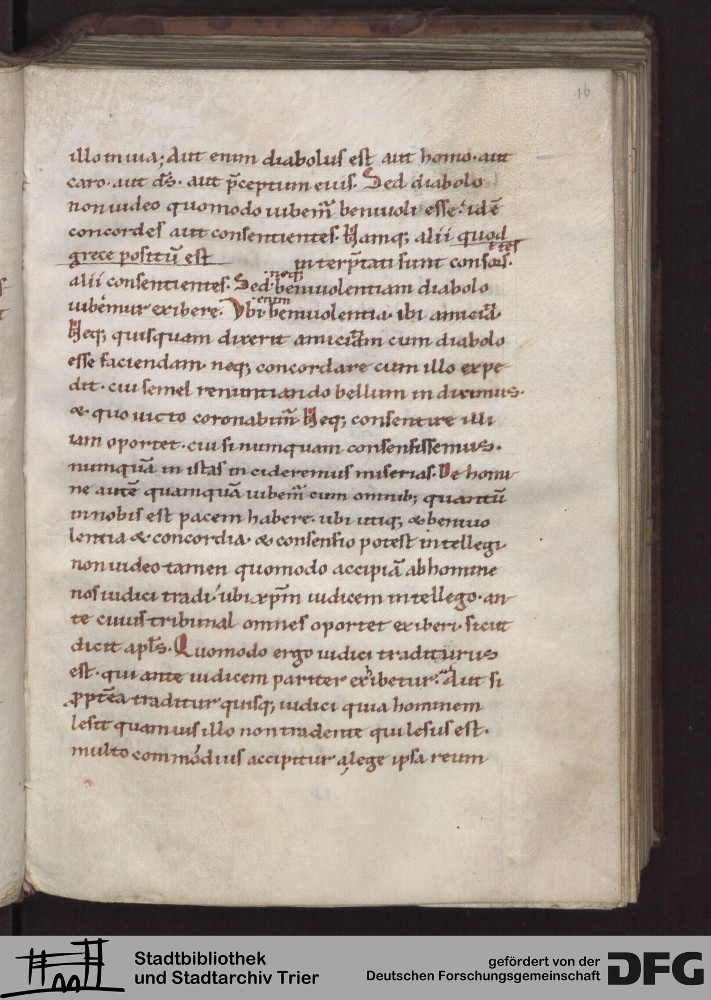 16
illo in uia; Aut enim diabolus est aut homo· aut
caro· aut d̄s· aut p̄ceptum eius· Sed diabolo
non uideo quomodo iubem̄ beniuoli esse· idē
concordes aut consentientes· Namq; alii quod
grece positū est interp̄tati sunt concordes·
alii consentientes· Sed neq; beniuolentiam diabolo
iubemur exibere· Vbi enim beniuolentia· ibi amicicia·
Neq; quisquam dixerit amiciciam cum diabolo
esse faciendam· neq; concordare cum illo expe
dit· cui semel renuntiando bellum indiximus·
& quo uicto coronabim̄ Neq; consentire illi
iam oportet· cui si numquam consensissemus·
numquā in istas incideremus miserias· De homi
ne autē quamquā iubem̄ cum omnib; quantū
in nobis est pacem habere· ubi utiq; & beniuo
lentia & concordia· & consensio potest intellegi
non uideo tamen quomodo accipiā ab homine
nos iudici tradi· ubi xp̄m iudicem intellego· an
te cuius tribunal omnes oportet exiberi· sicut
dicit apl̄s· Quomodo ergo iudici traditurus
est· qui ante iudicem pariter exhibetur· Aut si
propterea traditur quisq; iudici quia hominem
lesit quamuis illo non tradente qui lesus est·
multo commodius accipitur a lege ipsa reum
Stadtbibliothek
und Stadtarchiv Trier
gefördert von der
Deutschen Forschungsgemeinschaft
DFG